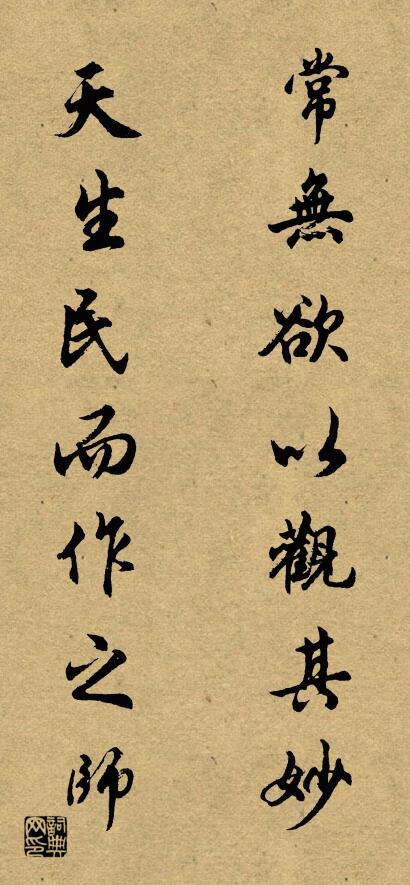 常無欲以觀其妙
天生民而作之師
詞典
网印